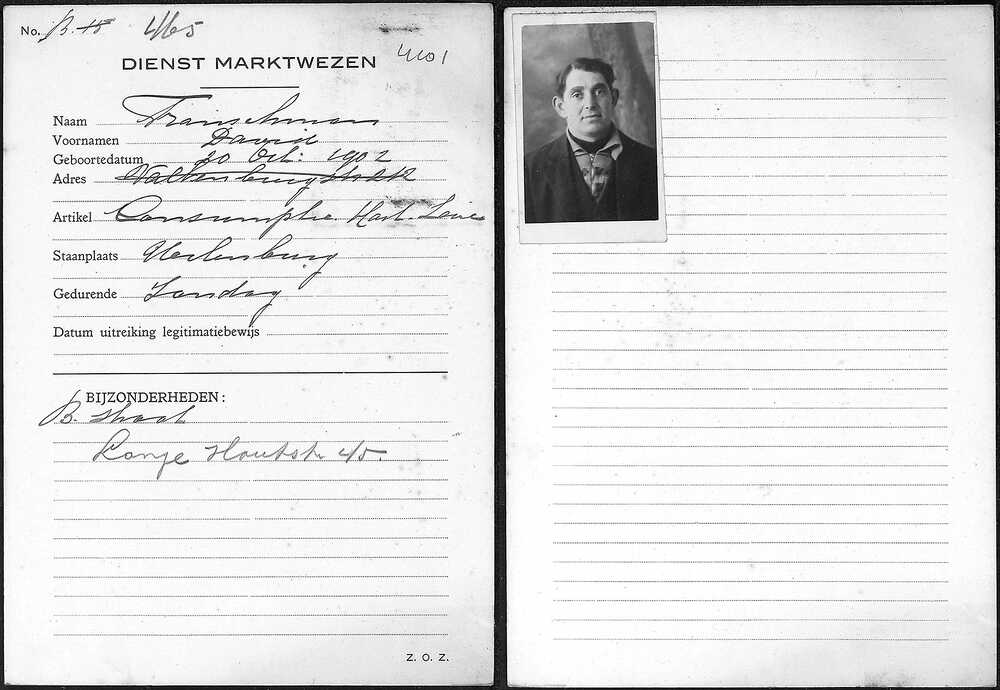 No. B. 18 465
4101
DIENST MARKTWEZEN
Naam Franschman
Voornamen David
Geboortedatum 20 Oct: 1902
Adres Valkenburgstraat
Artikel Consumptie Hart.
Staanplaats Uilenburg
Gedurende Zondag
Datum uitreiking legitimatiebewijs
BIJZONDERHEDEN:
B. straat
Lange Houtstr
Z. O. Z.